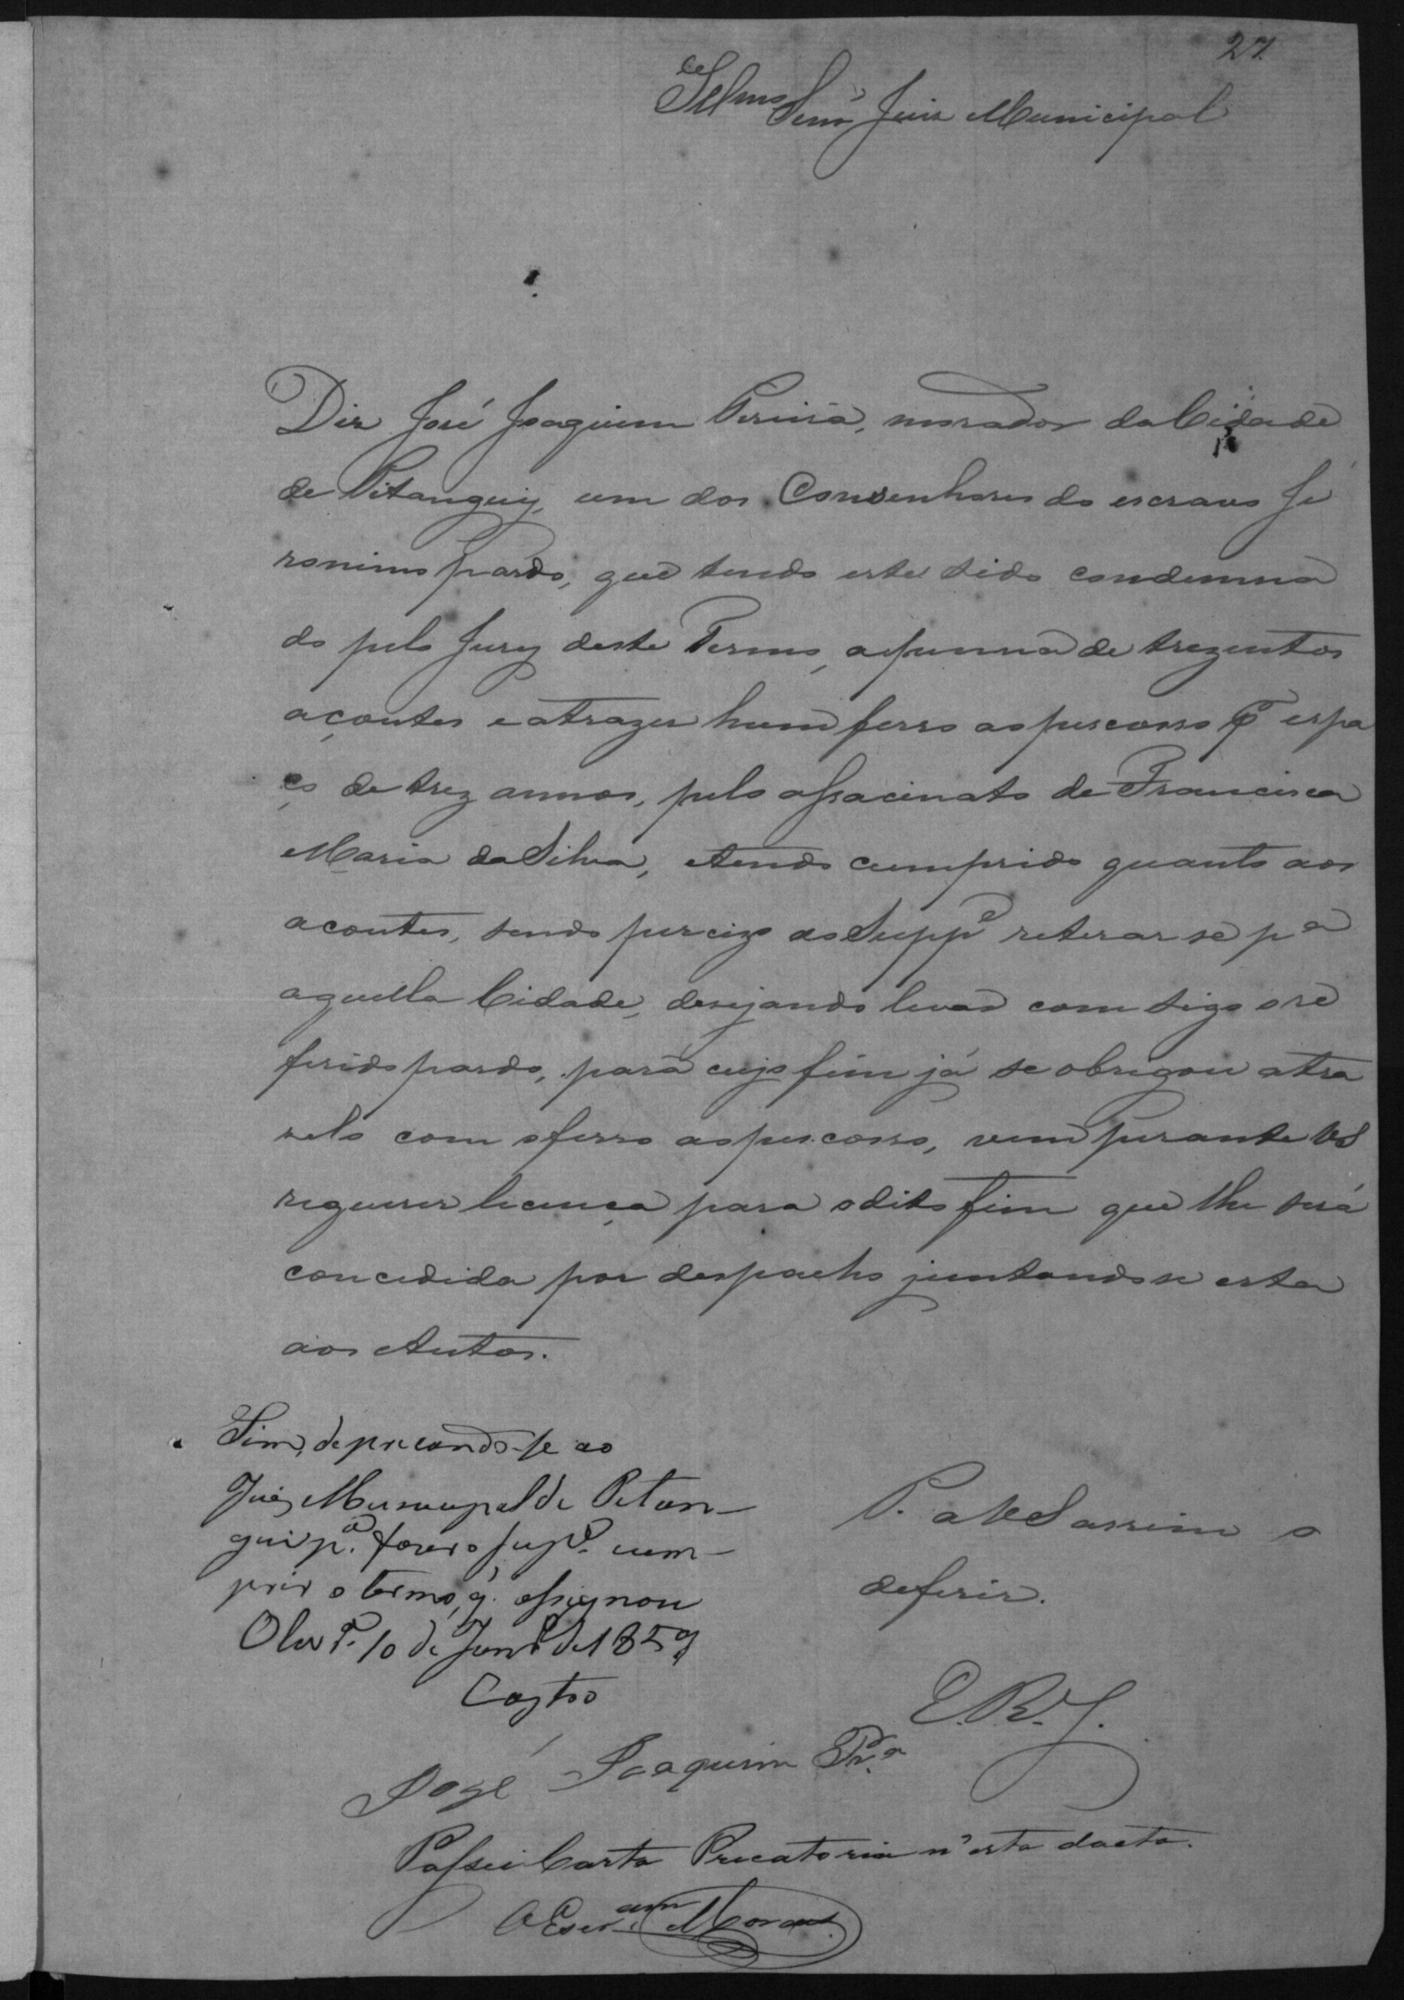 27.
Illmo Senr. Juiz Municipal
Diz José Joaquim Pereira, morador da Cidade
de Pitanguy, um dos Consenhores do escravo Je
ronimo pardo, que tendo este sido condemna
do pelo Jury deste Termo, a penna de trezentos
açoutes e a trazer hum ferro ao pescosso pr espa
ço de trez annos, pelo assacinato de Francisca
Maria da Silva, e tendo cumprido quanto aos
acoutes, sendo percizo ao Suppe reterar se pa
aquella Cidade, desejando levar com sigo o re
ferido pardo, para cujo fim já se obrigou a tra
zelo com o ferro ao pescosso, vem perante VS
requerer licença para o dito fim que lhe será
concedida por despacho juntando se esta
aos Autos.
Sim, deprecando-se ao
Juiz Municipal de Pitan-
gui pa. fazer o Supe. cum-
prir o termo, q. assignou
Olivra. 10 de Junho de 1859
Castro
P. a VS assim o
deferir.
E.R.J.
José Joaquim Pra.
Passei Carta Precatoria n'esta dacta.
O Escram